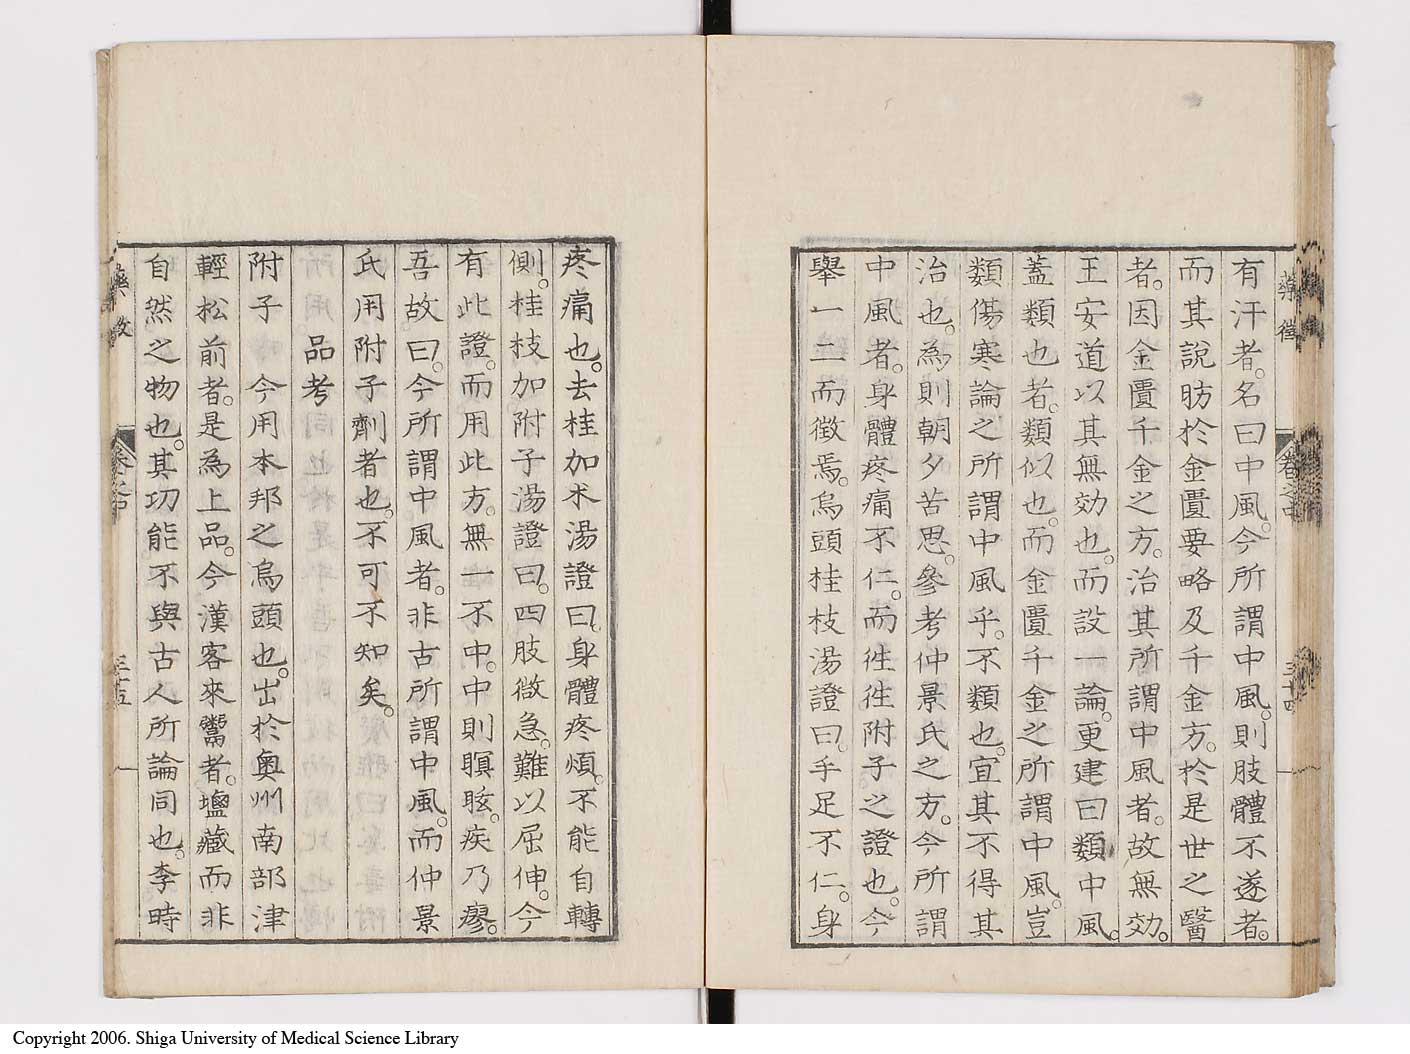 藥徵 卷之中 三十四
有汗者。名曰中風。今所謂中風。則肢體不遂者。
而其說昉於金匱要略及千金方。於是世之醫
者。因金匱千金之方。治其所謂中風者。故無効。
王安道以其無効也。而設一論。更建曰類中風。
蓋類也者。類似也。而金匱千金之所謂中風。豈
類傷寒論之所謂中風乎。不類也。宜其不得其
治也。為則朝夕苦思。參考仲景氏之方。今所謂
中風者。身體疼痛不仁。而徃徃附子之證也。今
舉一二而徵焉。烏頭桂枝湯證曰。手足不仁。身
疼痛也。去桂加朮湯證曰。身體疼煩。不能自轉
側。桂枝加附子湯證曰。四肢微急。難以屈伸。今
有此證。而用此方。無一不中。中則瞑眩。疾乃瘳。
吾故曰。今所謂中風者。非古所謂中風。而仲景
氏用附子劑者也。不可不知矣。
品考
附子 今用本邦之烏頭也。出於奧州南部津
輕松前者。是為上品。今漢客來鬻者。鹽藏而非
自然之物也。其功能不與古人所論同也。李時
藥徵 卷之中 三十五
Copyright 2006. Shiga University of Medical Science Library